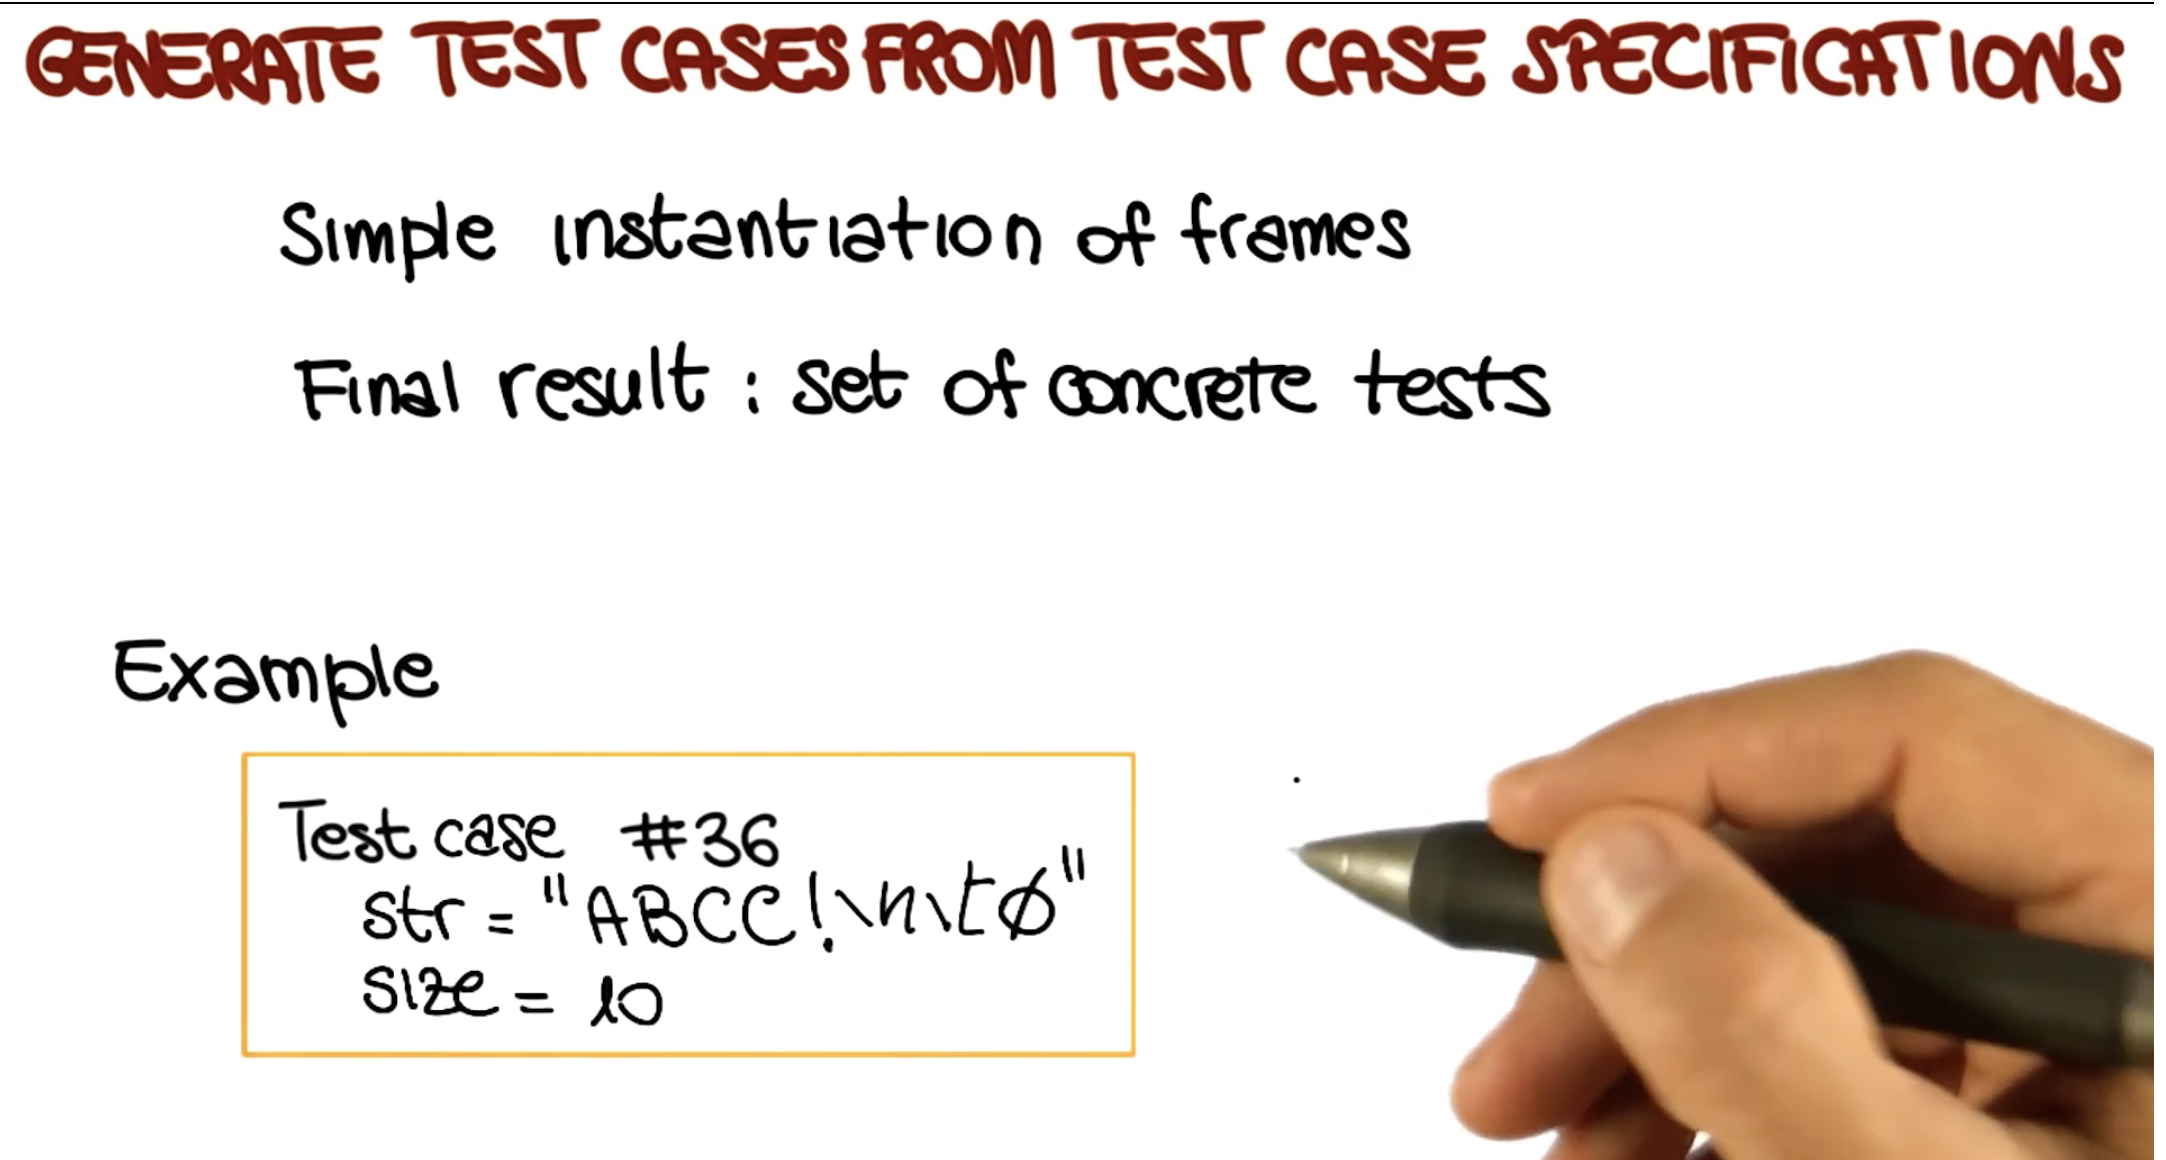 GENERATE TEST CASES FROM TEST CASE SPECIFICATIONS
Simple instantiation of frames
Final result : set of concrete tests
Example
Test case #36
str = "ABCC!\n\tø"
size = 10